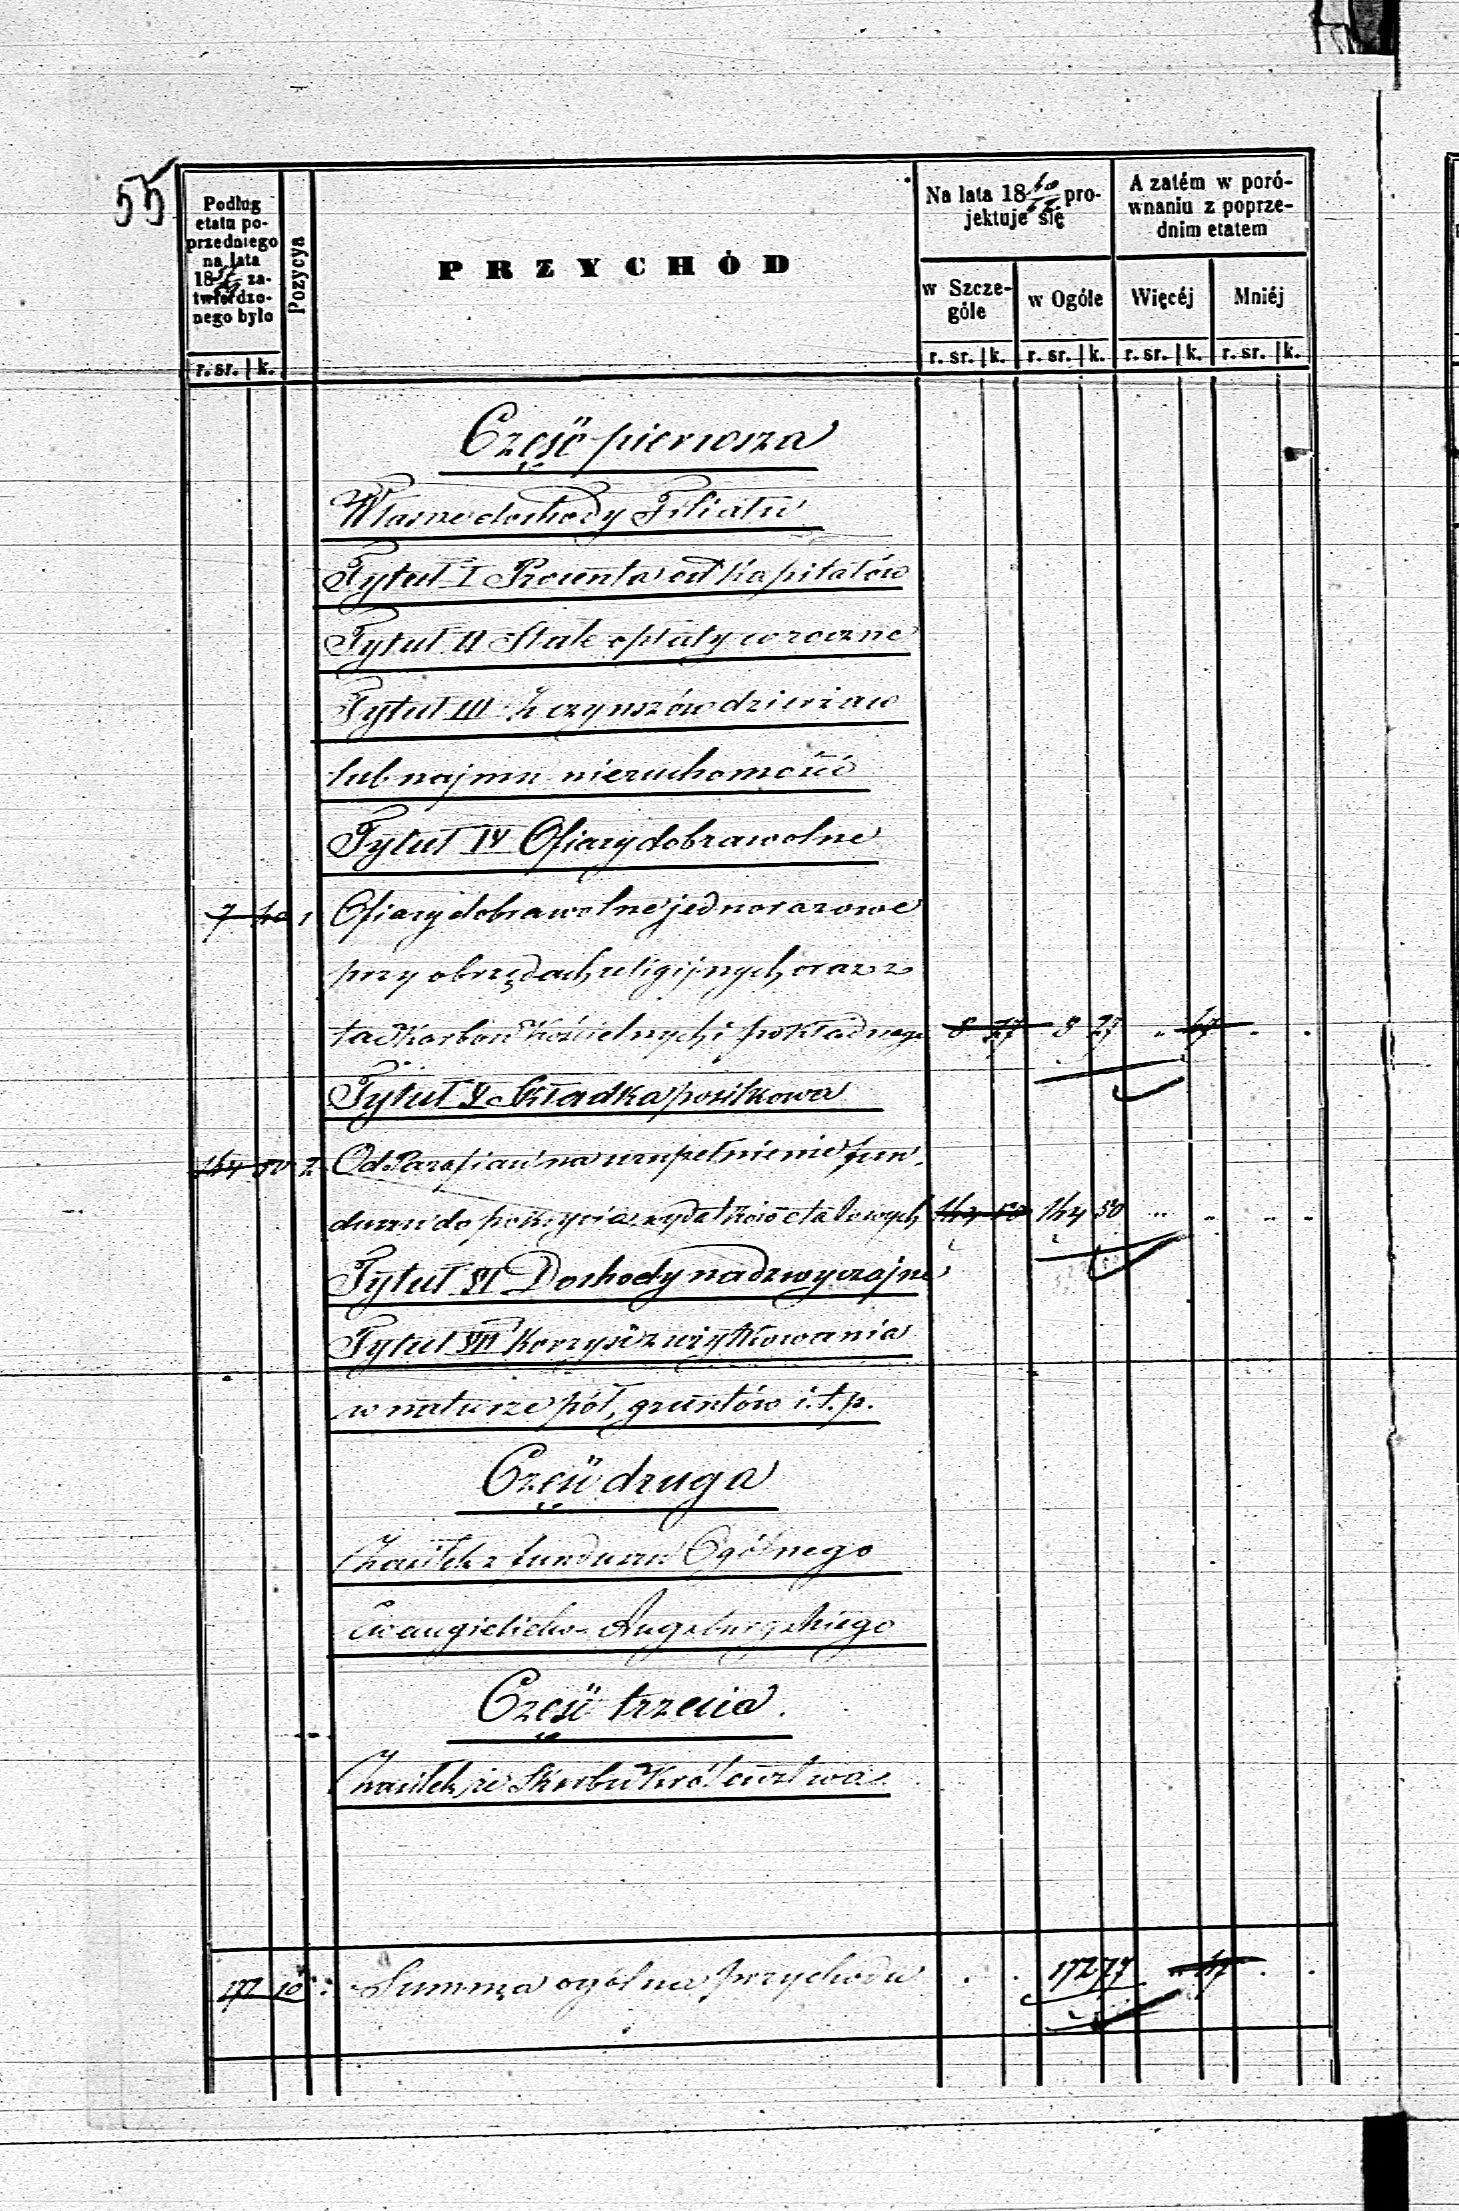 55
Podług
etatu po-
przedniego
na lata
18 57/59 za-
twierdzo-
nego było
Pozycya
PRZYCHÓD
Na lata 18 60/62 pro-
jektuje się
A zatém w poró-
wnaniu z poprze-
dnim etatem
w Szcze-
góle
w Ogóle
Więcéj
Mniéj
r. sr. k.
r. sr. k. r. sr. k. r. sr. k. r. sr. k.
Część pierwsza
Własne dochody Filiału
Tytuł I Procenta od Kapitałów
Tytuł II Stałe opłaty w roczne
Tytuł III Z czynszów dzierżaw
lub najmu nieruchomość
Tytuł IV Ofiary dobrawolne
7 1 Ofiary dobrawolne jednorazowe
przy obrzędach religijnych, oraz z
tac Karbon Kościelnych i pokładnego 8 27 8 27
Tytuł V Składka posiłkowa
164 50 2 Od Parafian na uzupełnienie fun-
duszu do pokrycia wydatków etatowych 164 50 164 50
Tytuł VI Dochody nadzwyczajne
Tytuł VII Korzyść z użytkowania
w naturze pól, gruntów i.t.p.
Część druga
Zasiłek z funduszu Ogólnego
Ewangielicko-Augsburgskiego
Część trzecia.
Zasiłek ze Skarbu Królewstwa
172 10 Summa ogólna przychodu 172 77